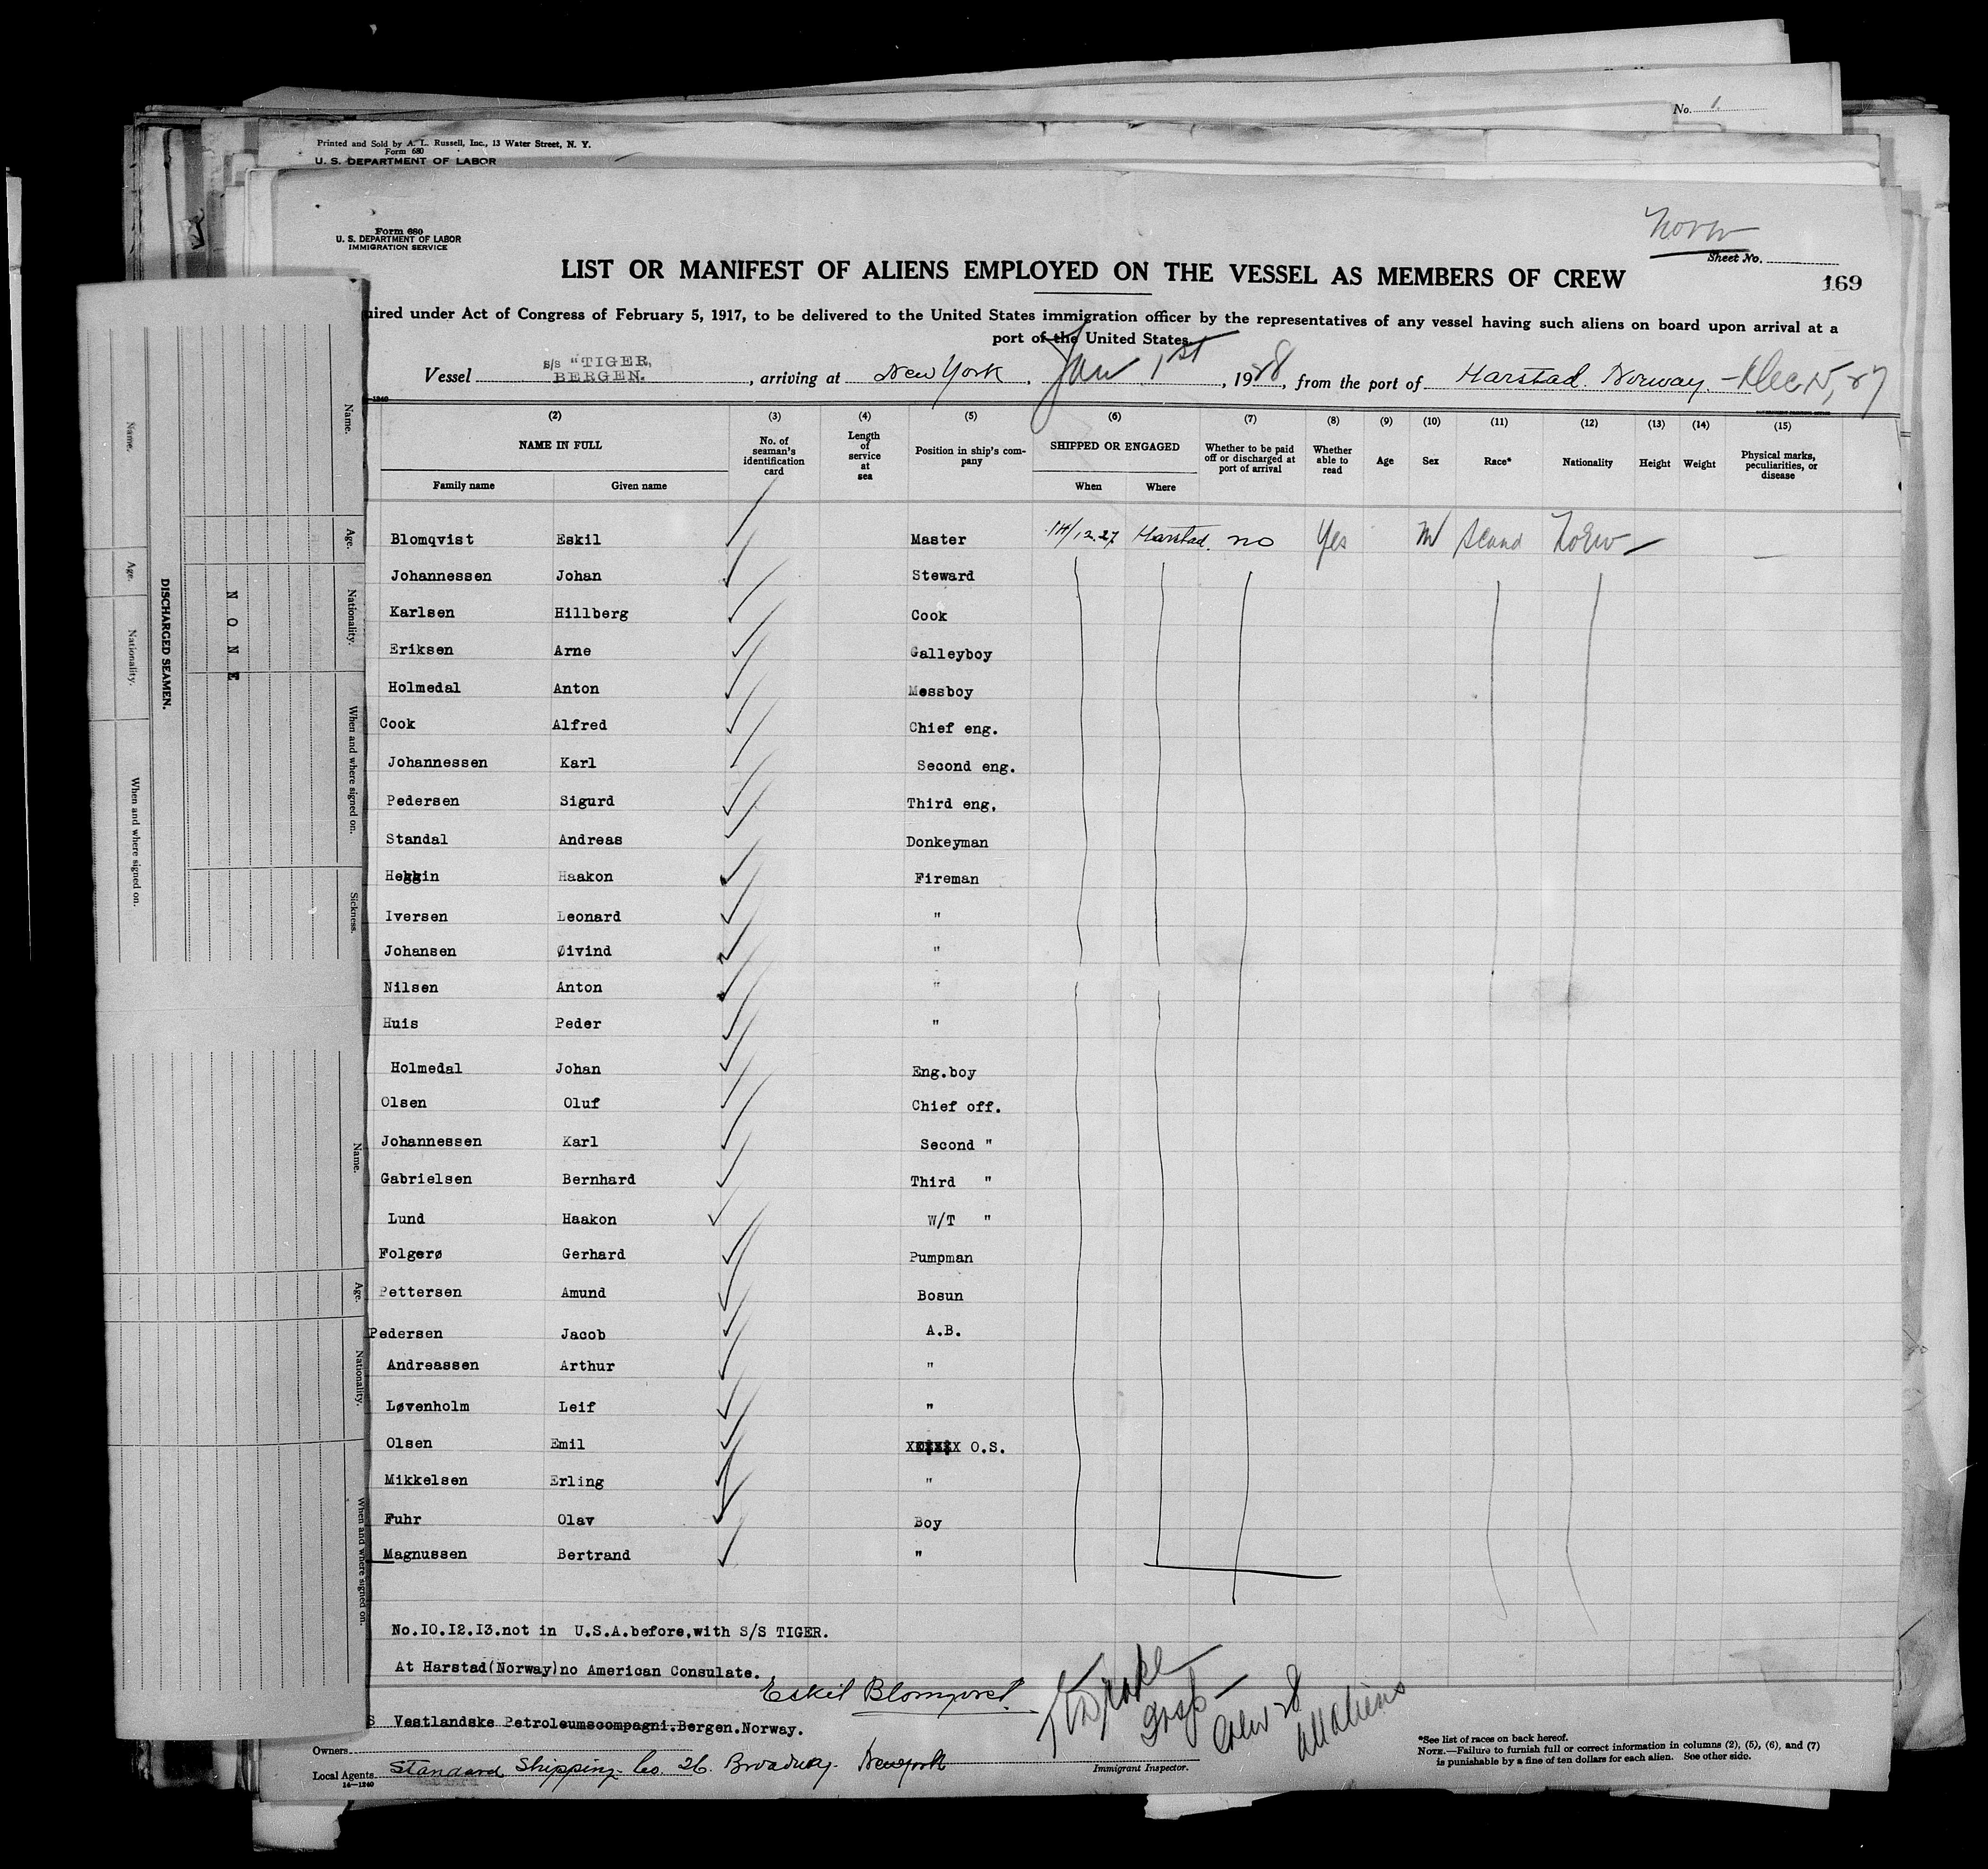 No. 1
Printed and Sold by A. L. Russell, Inc., 13 Water Street, N. Y.
Form 680
U. S. DEPARTMENT OF LABOR
Form 680
U. S. DEPARTMENT OF LABOR
IMMIGRATION SERVICE
Sheet No.
169
LIST OR MANIFEST OF ALIENS EMPLOYED ON THE VESSEL AS MEMBERS OF CREW
uired under Act of Congress of February 5, 1917, to be delivered to the United States immigration officer by the representatives of any vessel having such aliens on board upon arrival at a
port of the United States
Vessel S/S "TIGER, BERGEN. , arriving at New York , Jan 1st , 1928, from the port of Harstad. Norway. - Dec 15, 27
(2) (3) (4) (5) (6) (7) (8) (9) (10) (11) (12) (13) (14) (15)
NAME IN FULL No. of seaman's identification card Length of service at sea Position in ship's company SHIPPED OR ENGAGED Whether to be paid off or discharged at port of arrival Whether able to read Age Sex Race* Nationality Height Weight Physical marks, peculiarities, or disease
Family name Given name When Where
Blomqvist Eskil Master 14/12.27 Harstad. no Yes M Scand Norw —
Johannessen Johan Steward
Karlsen Hillberg Cook
Eriksen Arne Galleyboy
Holmedal Anton Messboy
Cook Alfred Chief eng.
Johannessen Karl Second eng.
Pedersen Sigurd Third eng.
Standal Andreas Donkeyman
Haakon Fireman
Iversen Leonard "
Johansen Øivind "
Nilsen Anton "
Huis Peder "
Holmedal Johan Eng.boy
Olsen Oluf Chief off.
Johannessen Karl Second "
Gabrielsen Bernhard Third "
Lund Haakon W/T "
Folgerø Gerhard Pumpman
Pettersen Amund Bosun
Pedersen Jacob A.B.
Andreassen Arthur "
Løvenholm Leif "
Olsen Emil O.S.
Mikkelsen Erling "
Fuhr Olav Boy
Magnussen Bertrand "
No.10.12.13.not in U.S.A.before,with S/S TIGER.
At Harstad(Norway)no American Consulate.
Eskil Blomqvist
S Vestlandske Petroleumscompagni.Bergen.Norway.
Owners
Local Agents Standard Shipping Co. 26. Broadway. New York
14—1240
Immigrant Inspector.
Crew 28
All aliens
*See list of races on back hereof.
NOTE.—Failure to furnish full or correct information in columns (2), (5), (6), and (7)
is punishable by a fine of ten dollars for each alien. See other side.
DISCHARGED SEAMEN.
NONE
Name.
Age.
Nationality.
When and where signed on.
Name.
Age.
Nationality.
When and where signed on.
Sickness.
Name.
Age.
Nationality.
When and where signed on.